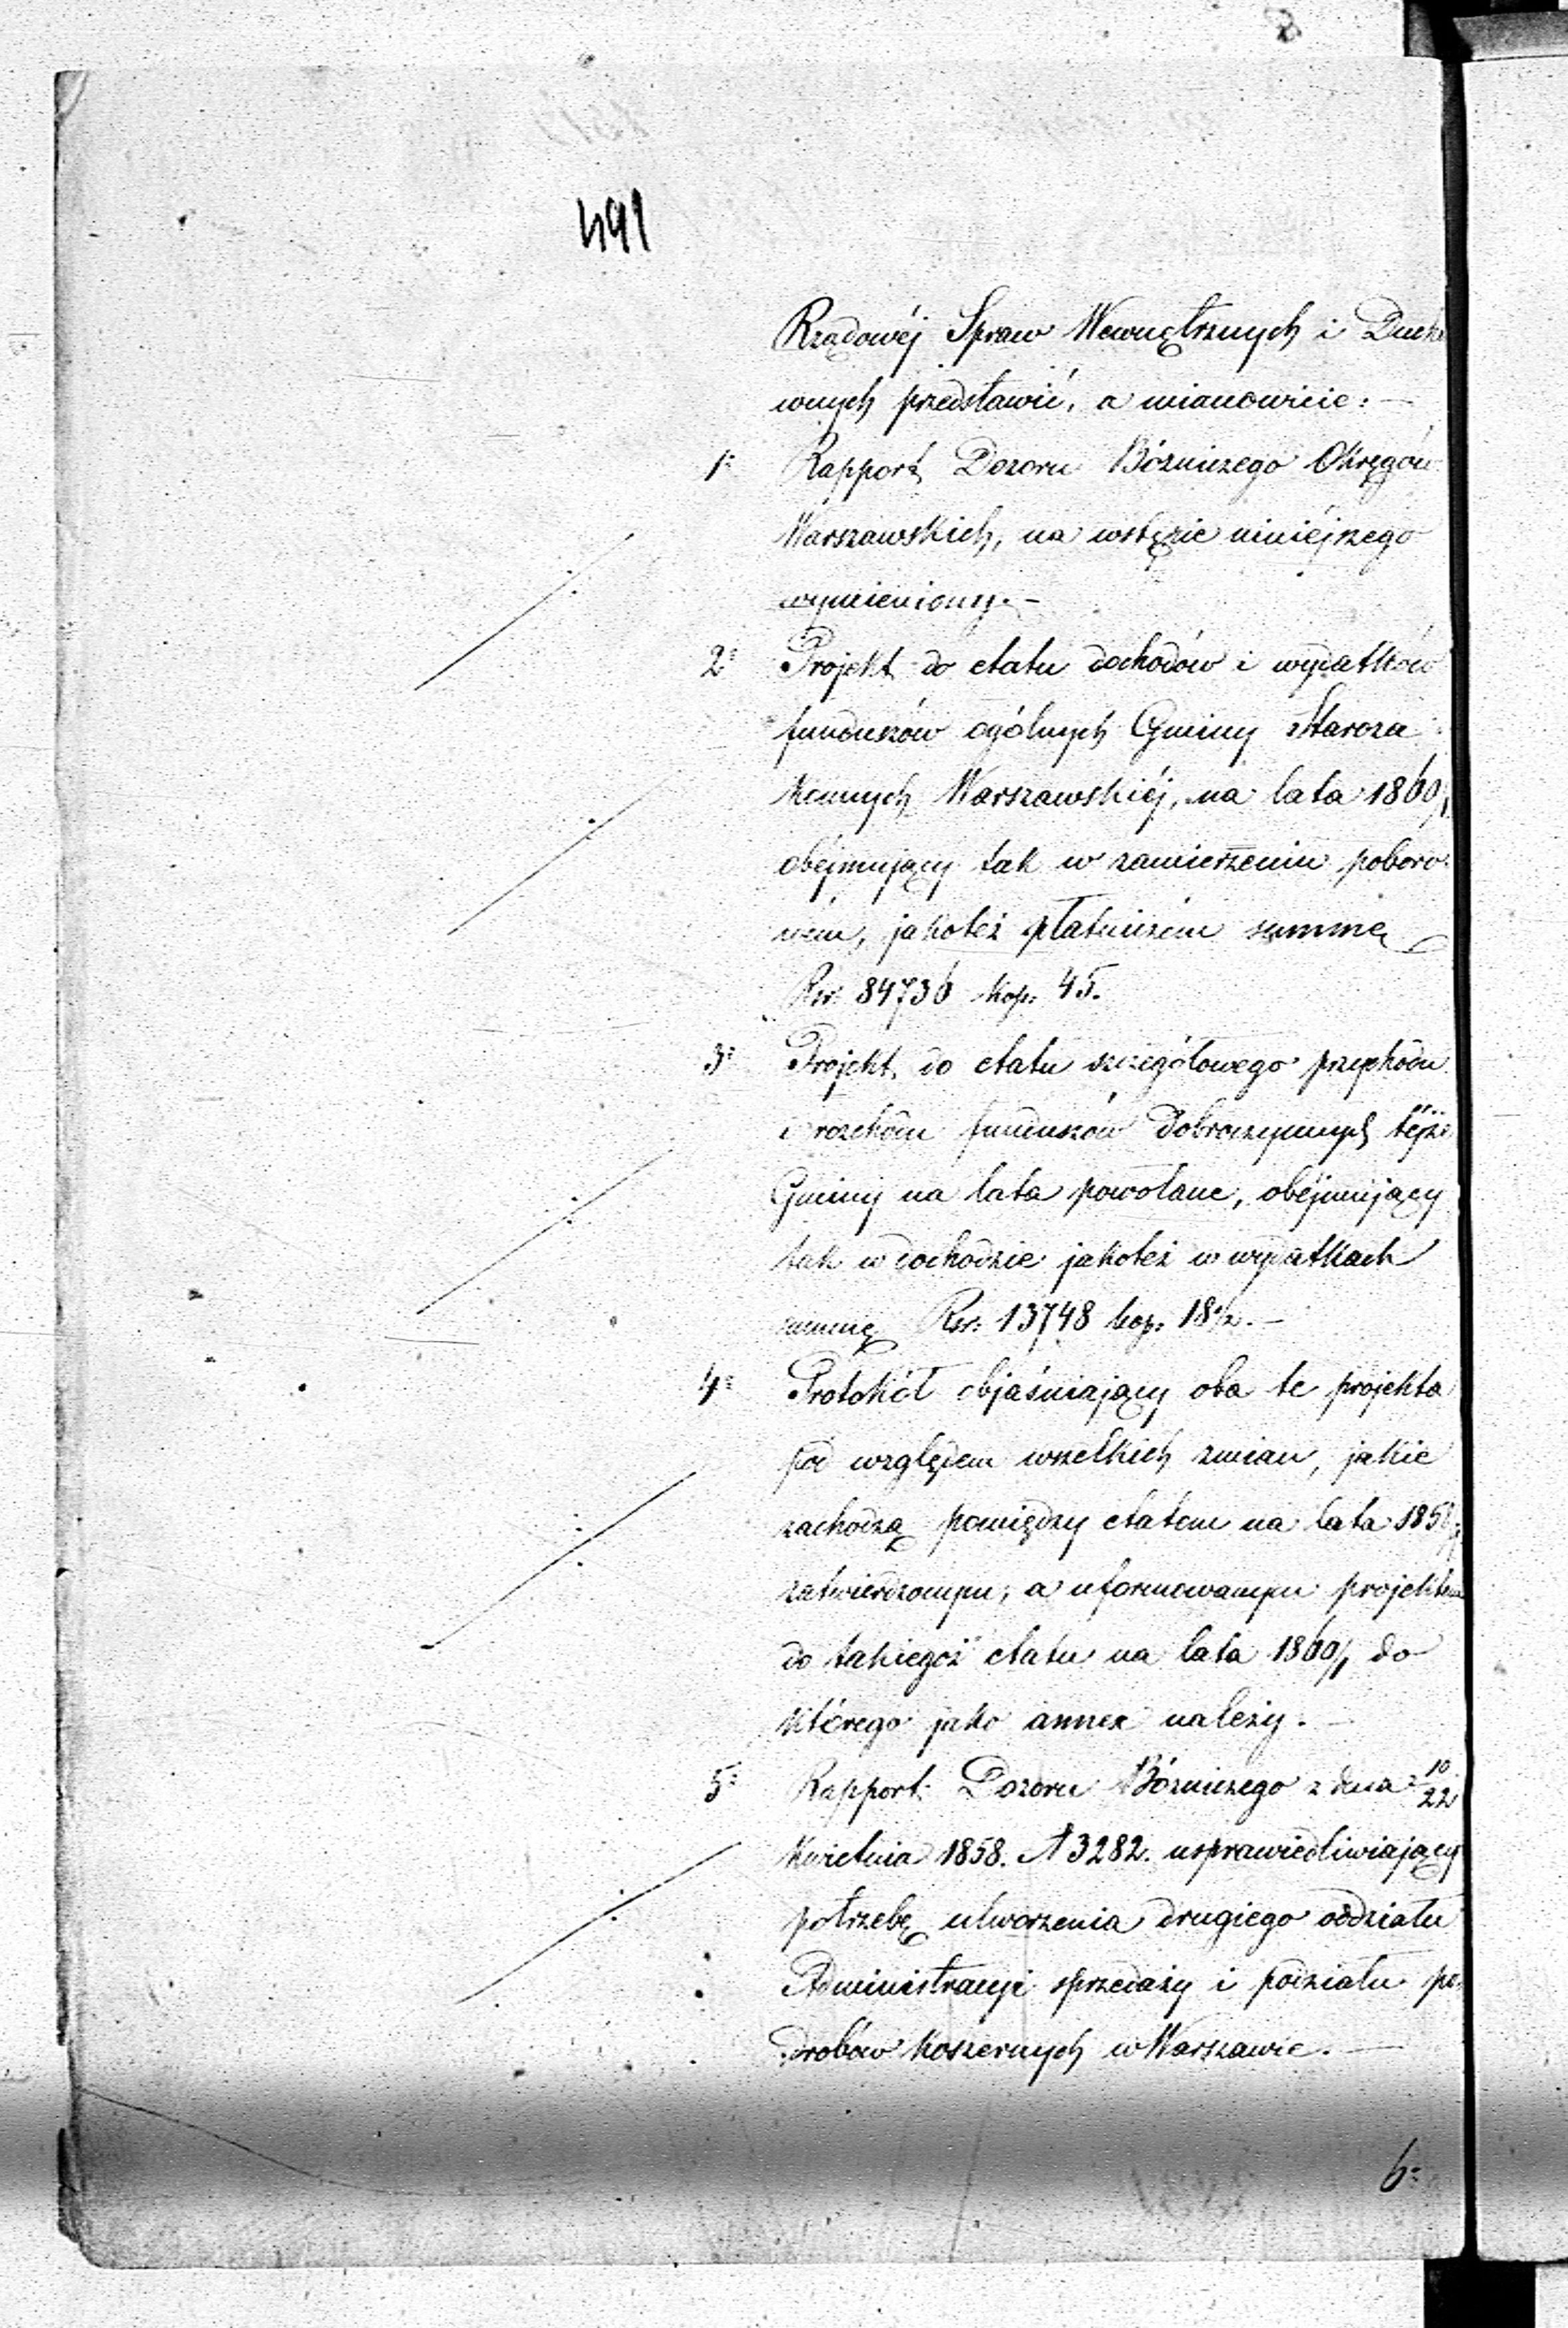 491
Rządowéj Spraw Wewnętrznych i Ducho
wnych przedstawić, a mianowicie: —
1: Rapport Dozoru Bóżniczego Okręgów
Warszawskich, na wstępie niniéjszego
wymieniony. —
2: Projekt do etatu dochodów i wydatków
funduszów ogólnych Gminy Staroza:
konnych Warszawskiéj, na lata 1860/1
obéjmujący tak w zamierzeniu poboro:
wém, jakotéż płatniczém summę
Rsr. 84736 kop. 45.
3: Projekt do etatu szczegółowego przychodu
i rozchodu funduszów dobroczynnych téjże
Gminy na lata powołane, obéjmujący
tak w dochodzie jakotéż w wydatkach
summę Rsr: 13748 kop. 18 1/2. —
4: Protokół objaśniający oba te projekta
pod względem wszelkich zmian, jakie
zachodzą pomiędzy etatem na lata
zatwierdzonym, a uformowanym projektem
do takiegoż etatu na lata 1860/1 do
którego jako annex należy. —
5: Rapport Dozoru Bóżniczego z dnia 10/22
Kwietnia 1858. N 3282. usprawiedliwiający
potrzebę utworzenia drugiego oddziału
Administracyi sprzedaży i podziału po:
drobów koszernych w Warszawie. —
6: